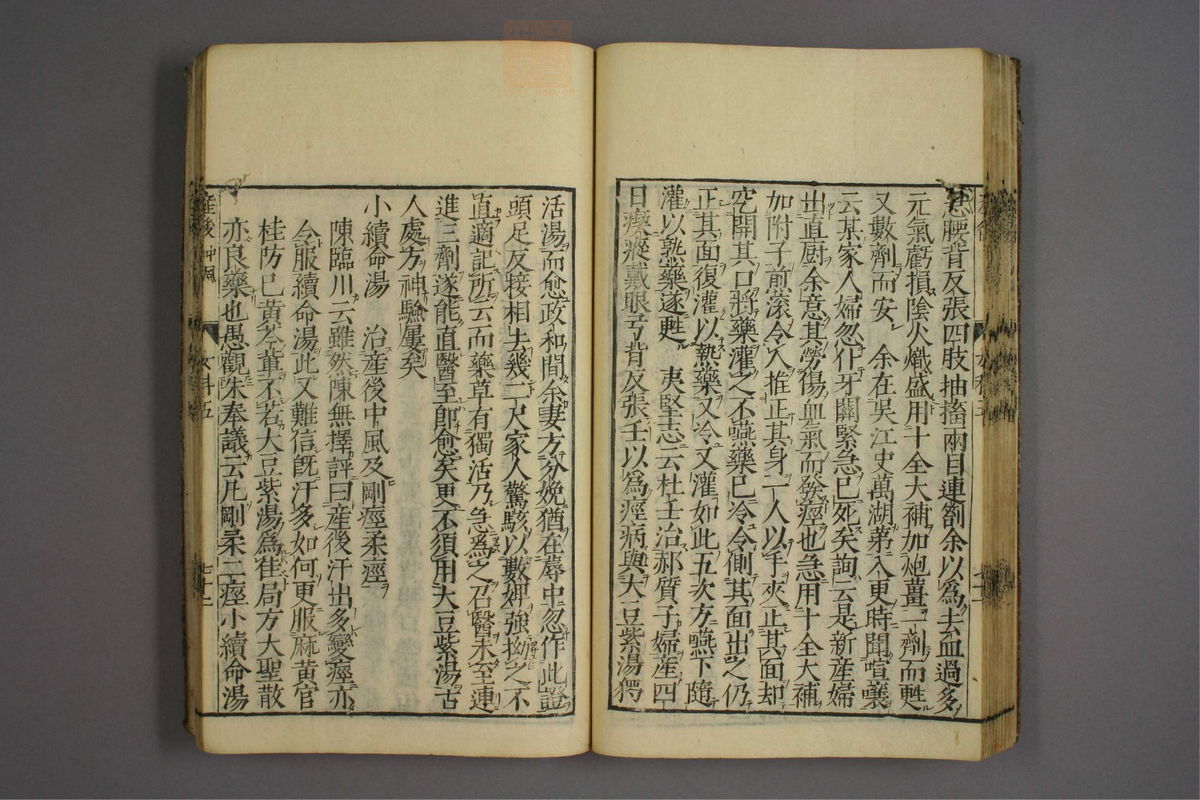 急腰背反張四肢抽搐兩目連劄余以爲去血過多
元氣虧損陰火熾盛用十全大補加炮薑一劑而甦
又數劑而安　余在吳江史萬湖第入更時聞喧嚷
云某家人婦忽仆牙關緊急已死矣詢云是新產婦
出直厨余意其勞傷血氣而發痙也急用十全大補
如附子前滾令人推正其身一人以手夾正其面却
空開其口將藥灌之不嚥藥已冷令側其面出之仍
正其面復灌以熱藥又冷又灌如此五次方嚥下隨
灌以熱藥遂甦　夷堅志云杜壬治郝質子婦產四
日瘛瘲戴眼弓背反張壬以爲痙病與大豆紫湯獨
活湯而愈政和間余妻方分娩猶在蓐中忽作此證
頭足反接相去幾二尺家人驚駭以數婢強拗之不
直適記所云而藥草有獨活乃急爲之召醫未至連
進三劑遂能直醫至即愈矣更不須用大豆紫湯古
人處方神驗屢矣
小續命湯　治産後中風及剛痙柔痙
陳臨川云雖然陳無擇評曰産後汗出多變痙亦
令服續命湯此又難信既汗多如何更服麻黃官
桂防已黃芩輩不若大豆紫湯爲隹局方大聖散
亦良藥也愚觀朱奉議云凡剛柔二痙小續命湯
産後 中風
女科五